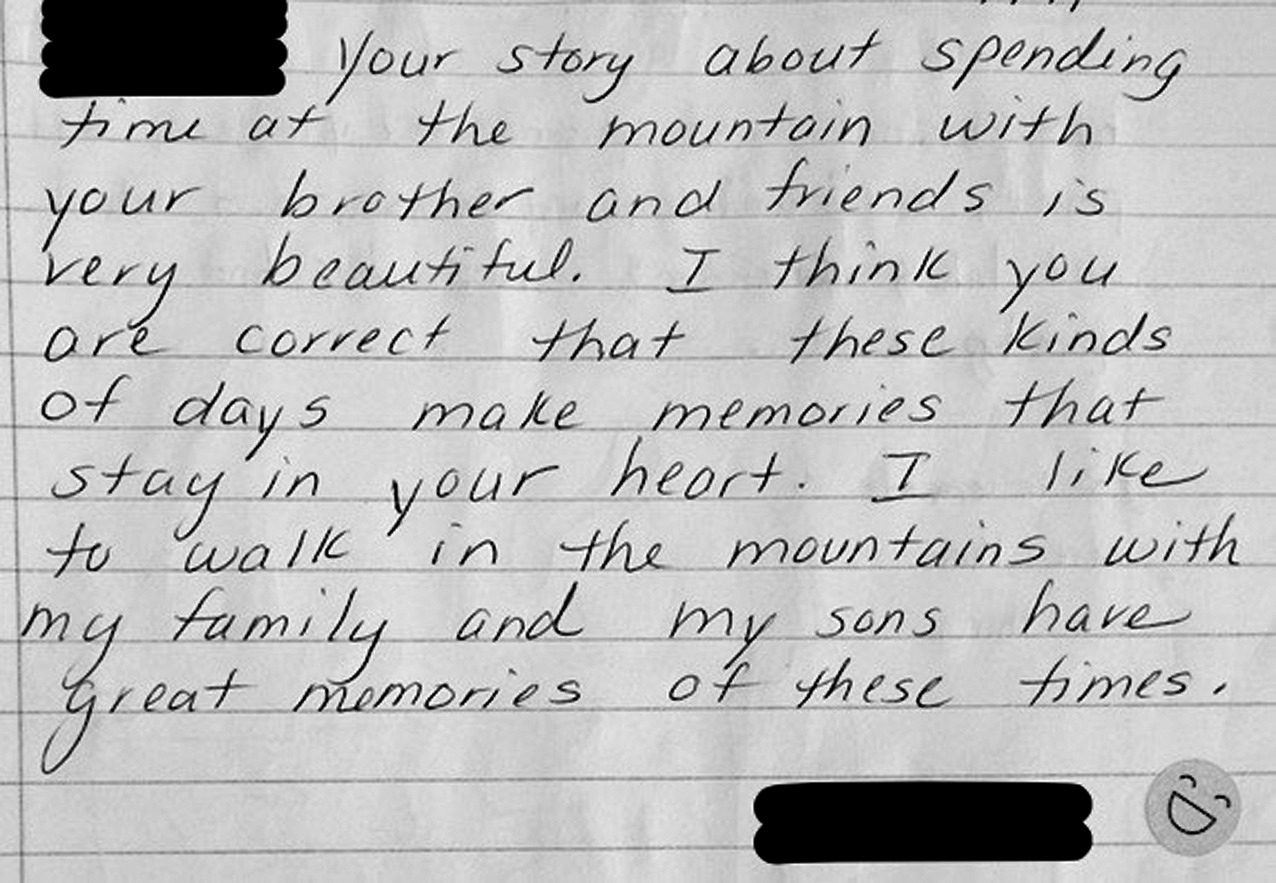 Your story about spending
time at the mountain with
your brother and friends is
very beautiful. I think you
are correct that these kinds
of days make memories that
stay in your heart. I like
to walk in the mountains with
my family and my sons have
great memories of these times.